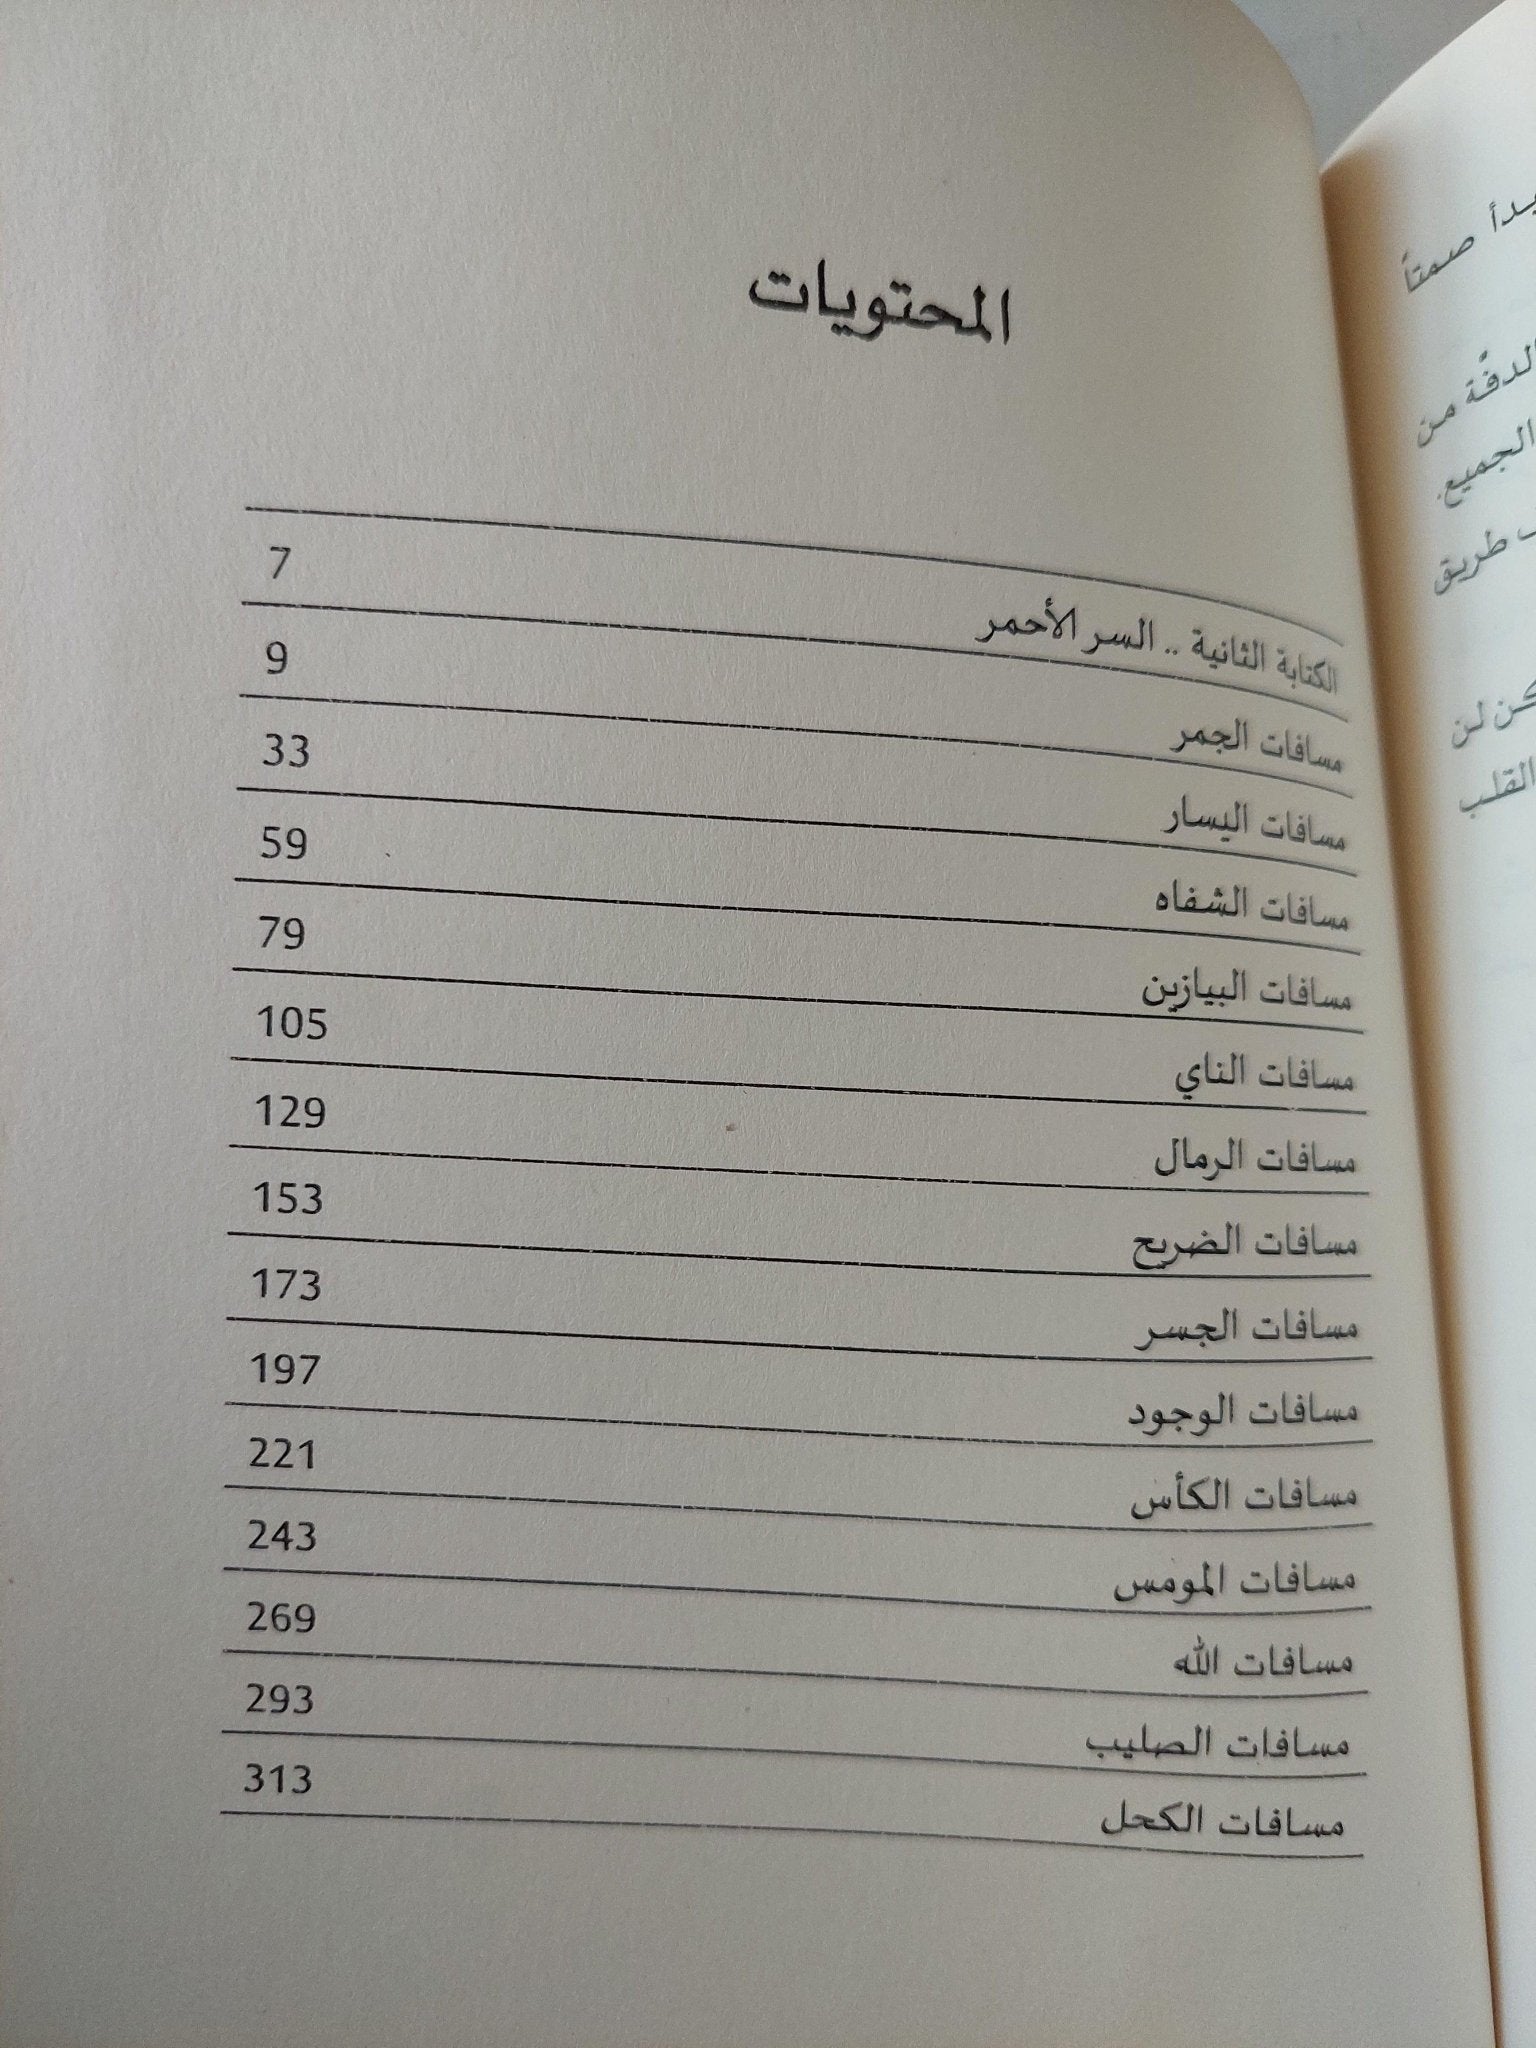 المحتويات
الكتابة الثانية .. السر الأحمر 7
مسافات الجمر 9
مسافات اليسار 33
مسافات الشفاه 59
مسافات البيازين 79
مسافات الناي 105
مسافات الرمال 129
مسافات الضريح 153
مسافات الجسر 173
مسافات الوجود 197
مسافات الكأس 221
مسافات المومس 243
مسافات الله 269
مسافات الصليب 293
مسافات الكحل 313
صمتاً
الدفّة من
الجميع.
طريق
لن
القلب